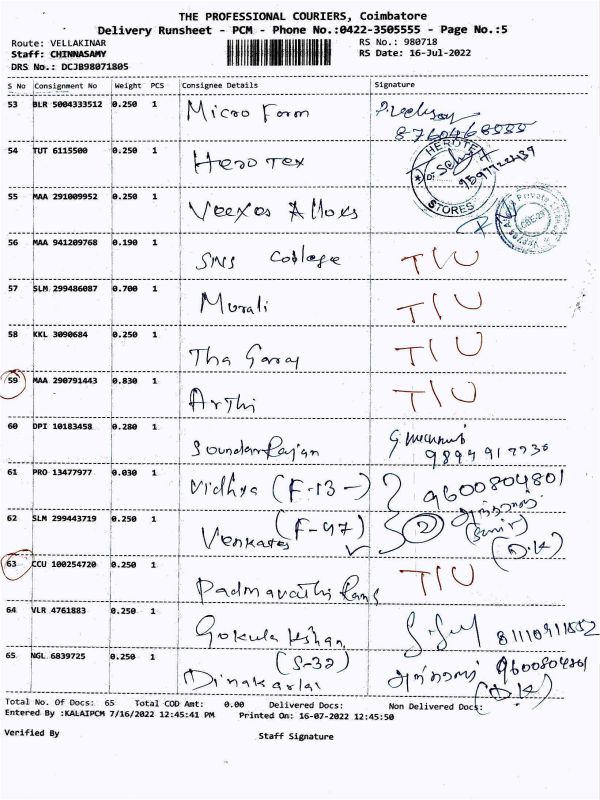 THE PROFESSIONAL COURIERS, Coimbatore
Delivery Runsheet - PCM - Phone No.:0422-3505555 - Page No.:5
Route: VELLAKINAR RS No.: 980718
Staff: CHINNASAMY RS Date: 16-Jul-2022
DRS No.: DCJB98071805
S No Consignment No Weight PCS Consignee Details Signature
53 BLR 5004333512 0.250 1 Micro Form
54 TUT 6115500 0.250 1 Hero Tex HEROTEX STORES
55 MAA 291009952 0.250 1
56 MAA 941209768 0.190 1 SNS College T/U
57 SLM 299486087 0.700 1 Murali T/U
58 KKL 3090684 0.250 1 T/U
59 MAA 290791443 0.830 1 Arthi T/U
60 DPI 10183458 0.280 1 SoundarRajan
61 PRO 13477977 0.030 1 Vidhya (F-13-) 9600804801
62 SLM 299443719 0.250 1 Venkates (F-47) 2 (D.K)
63 CCU 100254720 0.250 1 Padmavathi T/U
64 VLR 4761883 0.250 1
65 NGL 6839725 0.250 1 (S-32) 9600804801 (D.K)
Total No. Of Docs: 65 Total COD Amt: 0.00 Delivered Docs: Non Delivered Docs:
Entered By :KALAIPCM 7/16/2022 12:45:41 PM Printed On: 16-07-2022 12:45:50
Verified By Staff Signature